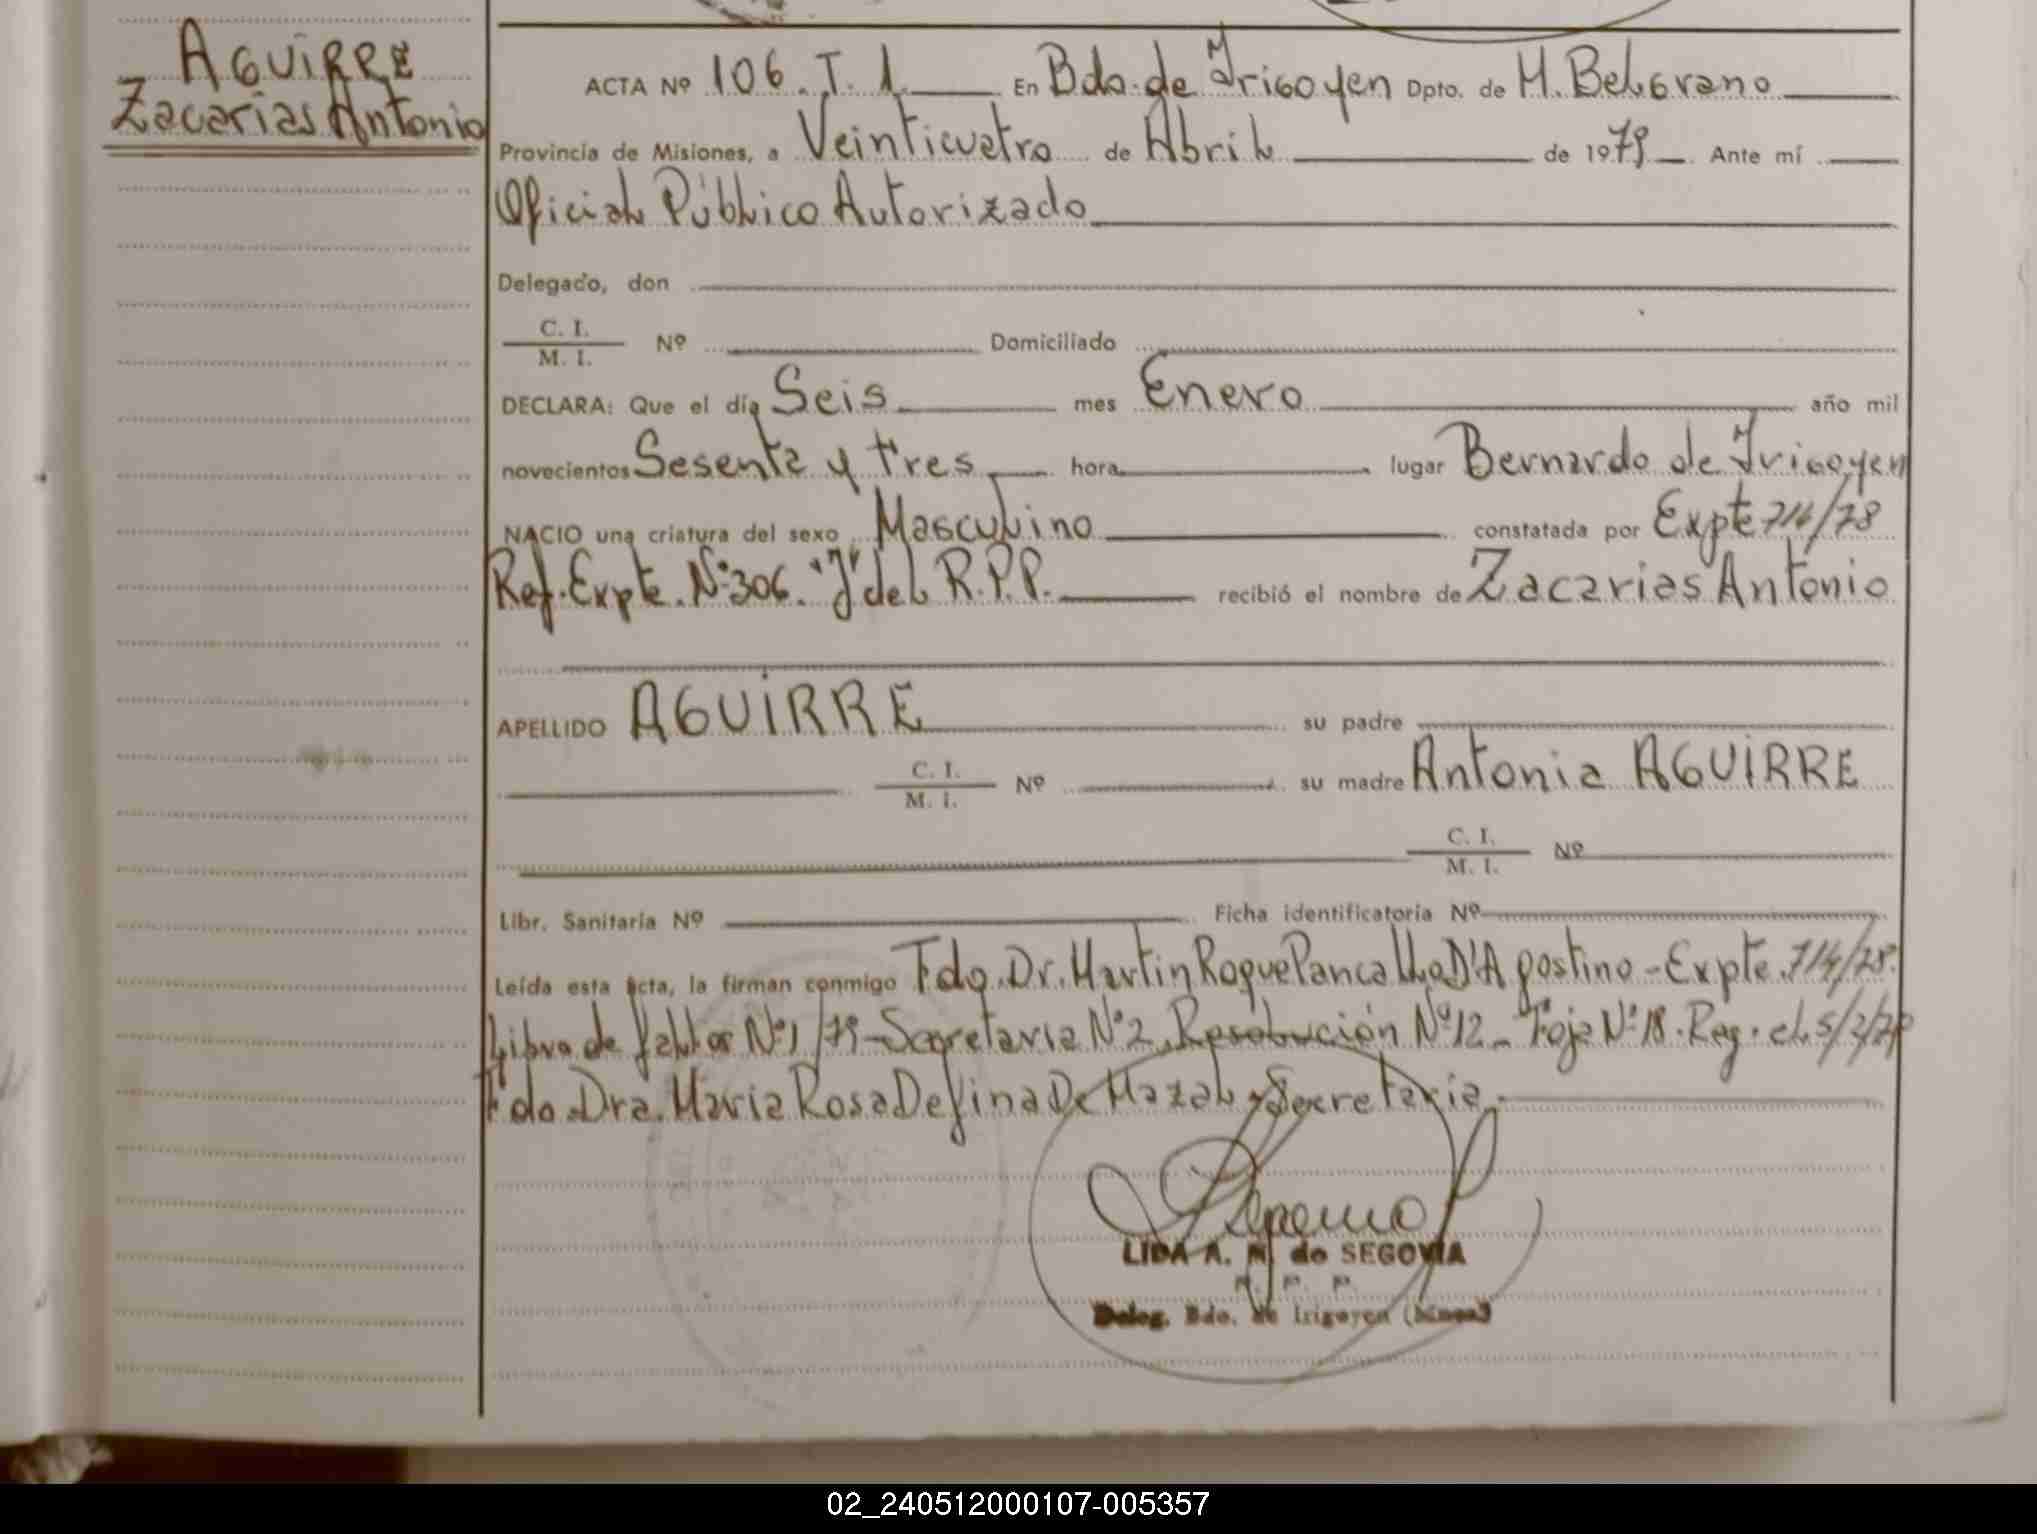 AGUiRRE
Zacarias Antonio
ACTA Nº 106. T. 1. En Bdo. de Irigoyen Dpto. de M. Belgrano
Provincia de Misiones, a Veinticuatro de Abril de 1979 Ante mí
Oficial Público Autorizado
Delegado, don
C. I.
M. I.
Nº Domiciliado
DECLARA: Que el día Seis mes Enero año mil
novecientos Sesenta y tres hora lugar Bernardo de Irigoyen
NACIO una criatura del sexo Masculino constatada por Expte 714/78
Ref. Expte. Nº 306. "J" del R.P.P. recibió el nombre de Zacarias Antonio
APELLIDO AGUiRRE su padre
C. I.
M. I.
Nº su madre Antonia AGUiRRE
C. I.
M. I.
Nº
Libr. Sanitaria Nº Ficha identificatoria Nº
Leída esta acta, la firman conmigo Fdo. Dr. Martin Roque Pancallo D'Agostino - Expte. 714/78.
Libro de fallos Nº 1/79 - Secretaria Nº 2. Resolución Nº 12 - Foja Nº 18. Reg. el 5/2/79
Fdo. Dra. Maria Rosa Delfina De Mazal, Secretaria.
LIDA A. N. de SEGOVIA
R. P. P.
Deleg. Bdo. de Irigoyen (Mnes)
02_240512000107-005357